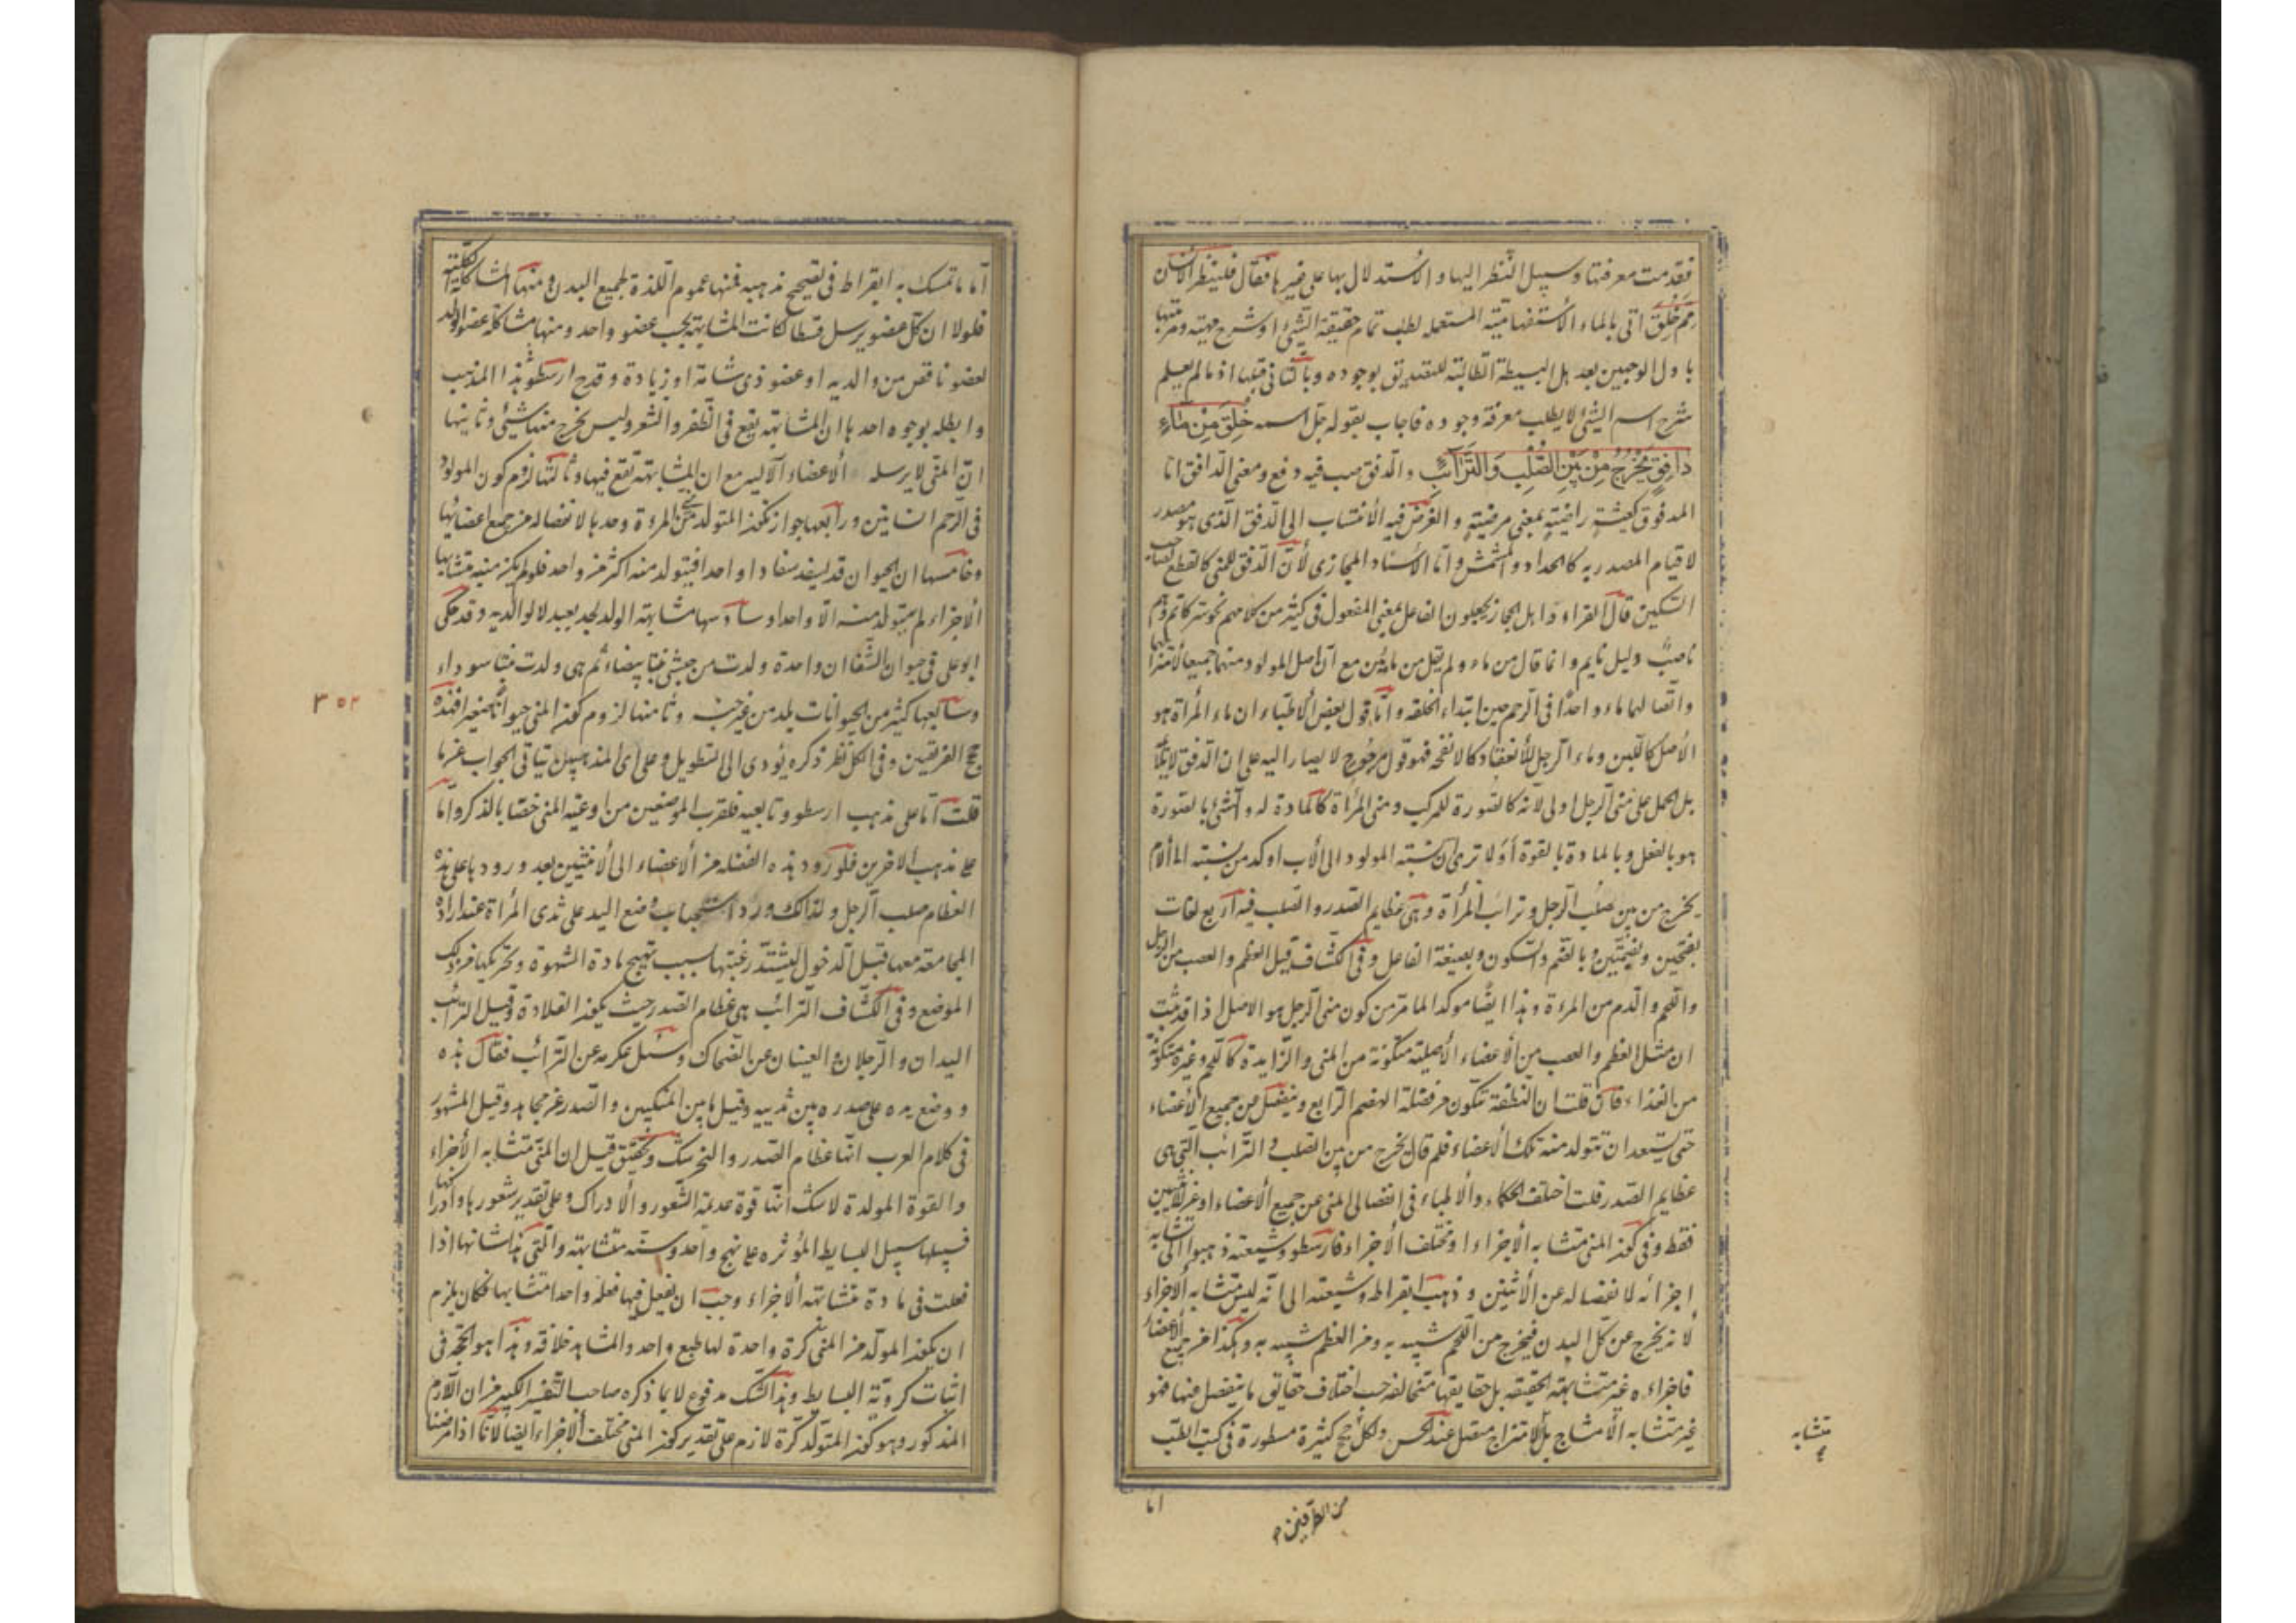 فقدمت معرفتها وسبيل النظر اليها والاستدلال بها على غيرها فقال فلينظر الانسان
مم خلق اتى بالماء الاستفهامية المستعمله لطلب تمام حقيقة الشئ او شرح مهيته ومرتبتها
باول الوجهين بعد هل البسيطة الطالبة للتصديق بوجوده وبالثانى قبلها اذ ما لم يعلم
شرح اسم الشئ لا يطلب معرفة وجوده فاجاب بقوله جل اسمه خُلِقَ مِنْ مَآءٍ
دافِقٍ يَخْرُجُ مِنْ بَيْنِ الصُّلْبِ وَالتَّرَآئِبِ والدفق صب فيه دفع ومعنى الدافق اما
المدفوق كعيشة راضية بمعنى مرضية والغرض فيه الانتساب الى الدفق الذى هو مصدر
لا قيام المصدر به كالحداد والمشمش واما الاسناد المجازى لأن الدفق للمنى كالقطع لصاحب
السكين قال الفراء واهل الحجاز يجعلون الفاعل بمعنى المفعول فى كثير من كلامهم نحو سر كاتم وهم
ناصب وليل نايم وانما قال من ماء ولم يقل من مائين مع ان اصل المولود منهما جميعا لامتزاجهما
واتصالهما ماء واحدا فى الرحم حين ابتداء الخلقه واما قول بعض الاطباء ان ماء المرأة هو
الاصل كاللبن وماء الرجل للانعقاد كالانفحه فهو قول مرجوح لا يصار اليه على ان الدفق لا يلائمه
بل الحمل على منى الرجل اولى لانه كالصورة للمركب ومنى المرأة كالمادة له والشئ بالصورة
هو بالفعل وبالمادة بالقوة أولا ترى ان نسبة المولود الى الاب اوكد من نسبته الى الام
يخرج من بين صلب الرجل وترائب المرأة وهى عظايم الصدر والصلب فيه اربع لغات
بفتحتين وبضمتين وبالضم والسكون وبصيغة الفاعل وفى الكشاف قيل العظم والعصب من الرجل
واللحم والدم من المرءة وهذا ايضا موكد لما مر من كون منى الرجل هو الاصل اذ قد ثبت
ان مثل العظم والعصب من الاعضاء الاصلية متكونة من المنى والزايدة كاللحم وغيره متكونة
من الغذاء فان قلت ان النطفة تتكون من فضلة الهضم الرابع وينفصل من جميع الاعضاء
حتى يستعد ان تتولد منه تلك الاعضاء فلم قال يخرج من بين الصلب والترائب التى هى
عظايم الصدر قلت اختلف الحكماء والاطباء فى انفصال المنى عن جميع الاعضاء او عن الانثيين
فقط وفى كون المنى متشابه الاجزاء او مختلف الاجزاء فارسطو وشيعته ذهبوا الى تشابه
اجزائه لانفصاله عن الانثيين وذهب ابقراط وشيعته الى انه ليس متشابه الاجزاء
لانه يخرج عن كل البدن فيخرج من اللحم شبيه به ومن العظم شبيه به وهكذا من جميع الاعضاء
فاجزاءه غير متشابهة الحقيقه بل حقايقها متخالفة حسب اختلاف حقايق ما ينفصل منها فهو
غير متشابه الامشاج بل الامتزاج متصل عند الحس ولكل حجج كثيرة مسطورة فى كتب الطب
متشابه
اما
من الطرفين
اما ما تمسك به ابقراط فى تصحيح مذهبه فمنها عموم اللذة لجميع البدن ومنها المشاكلة الكلية
فلولا ان كل عضو يرسل قسطا لكانت المشابهة بحسب عضو واحد ومنها مشاكلة عضو الولد
لعضو ناقص من والديه او عضو ذى شامة او زيادة وقدح ارسطو بهذا المذهب
وابطله بوجوه احدها ان المشابهة يقع فى الظفر والشعر وليس يخرج منهما شئ وثانيها
ان المنى لا يرسله الاعضاء الاليه مع ان المشابهة تقع فيها وثالثها لزوم كون المولود
فى الرحم انسانين ورابعها جواز تكون المتولد من منى المرءة وحدها لانفصاله من جميع اعضائها
وخامسها ان الحيوان قد يسفد سفادا واحدا فيتولد منه اكثر من واحد فلو لم يكن منيه متشابها
الاجزاء لم يتولد منه الا واحدا وسادسها مشابهة الولد لجد بعيد لا لوالديه وقد حكى
ابو على فى حيوان الشفا ان واحدة ولدت من حبشى بنتا بيضاء ثم هى ولدت بنتا سوداء
وسابعها كثير من الحيوانات يلد من غير جنسه وثامنها لزوم كون المنى حيوانا صغيرا فهذه
حجج الفريقين وفى الكل نظر ذكره يؤدى الى التطويل وعلى اى المذهبين يتاتى الجواب عنها
قلت اما على مذهب ارسطو وتابعيه فلقرب الموضعين من اوعية المنى خصا بالذكر واما
على مذهب الاخرين فلورود هذه الفضله من الاعضاء الى الانثيين بعد ورودها على هذه
العظام صلب الرجل ولذلك ورد استحباب وضع اليد على ثدى المرأة عند ارادة
المجامعة معها قبل الدخول ليشتد رغبتها بسبب تهيج مادة الشهوة وتحركها من ذلك
الموضع وفى الكشاف الترائب هى عظام الصدر حيث يكون القلادة وقيل الترائب
اليدان والرجلان والعينان عن الضحاك وسئل عكرمه عن الترائب فقال هذه
ووضع يده على صدره بين ثدييه وقيل ما بين المنكبين والصدر عن مجاهد وقيل المشهور
فى كلام العرب انها عظام الصدر والنحر شك وتحقيق قيل ان المنى متشابه الاجزاء
والقوة المولدة لاشك انها قوة عديمة الشعور والادراك وعلى تقدير شعورها وادراكها
فسبيلها سبيل البسايط المؤثره على نهج واحد وسنة متشابهة والتى هذا شانها اذا
فعلت فى مادة متشابهة الاجزاء وجب ان يفعل فيها فعلا واحدا متشابها فكان يلزم
ان يكون المولد من المنى كرة واحدة لها طبع واحد والمشاهد خلافه وهذا هو الحجة فى
اثبات كروية البسايط وهذا الشك مدفوع لا بما ذكره صاحب التفسير الكبير من ان اللازم
المذكور وهو كون المتولد كرة لازم على تقدير كون المنى مختلف الاجزاء ايضا لانا اذا فرضنا